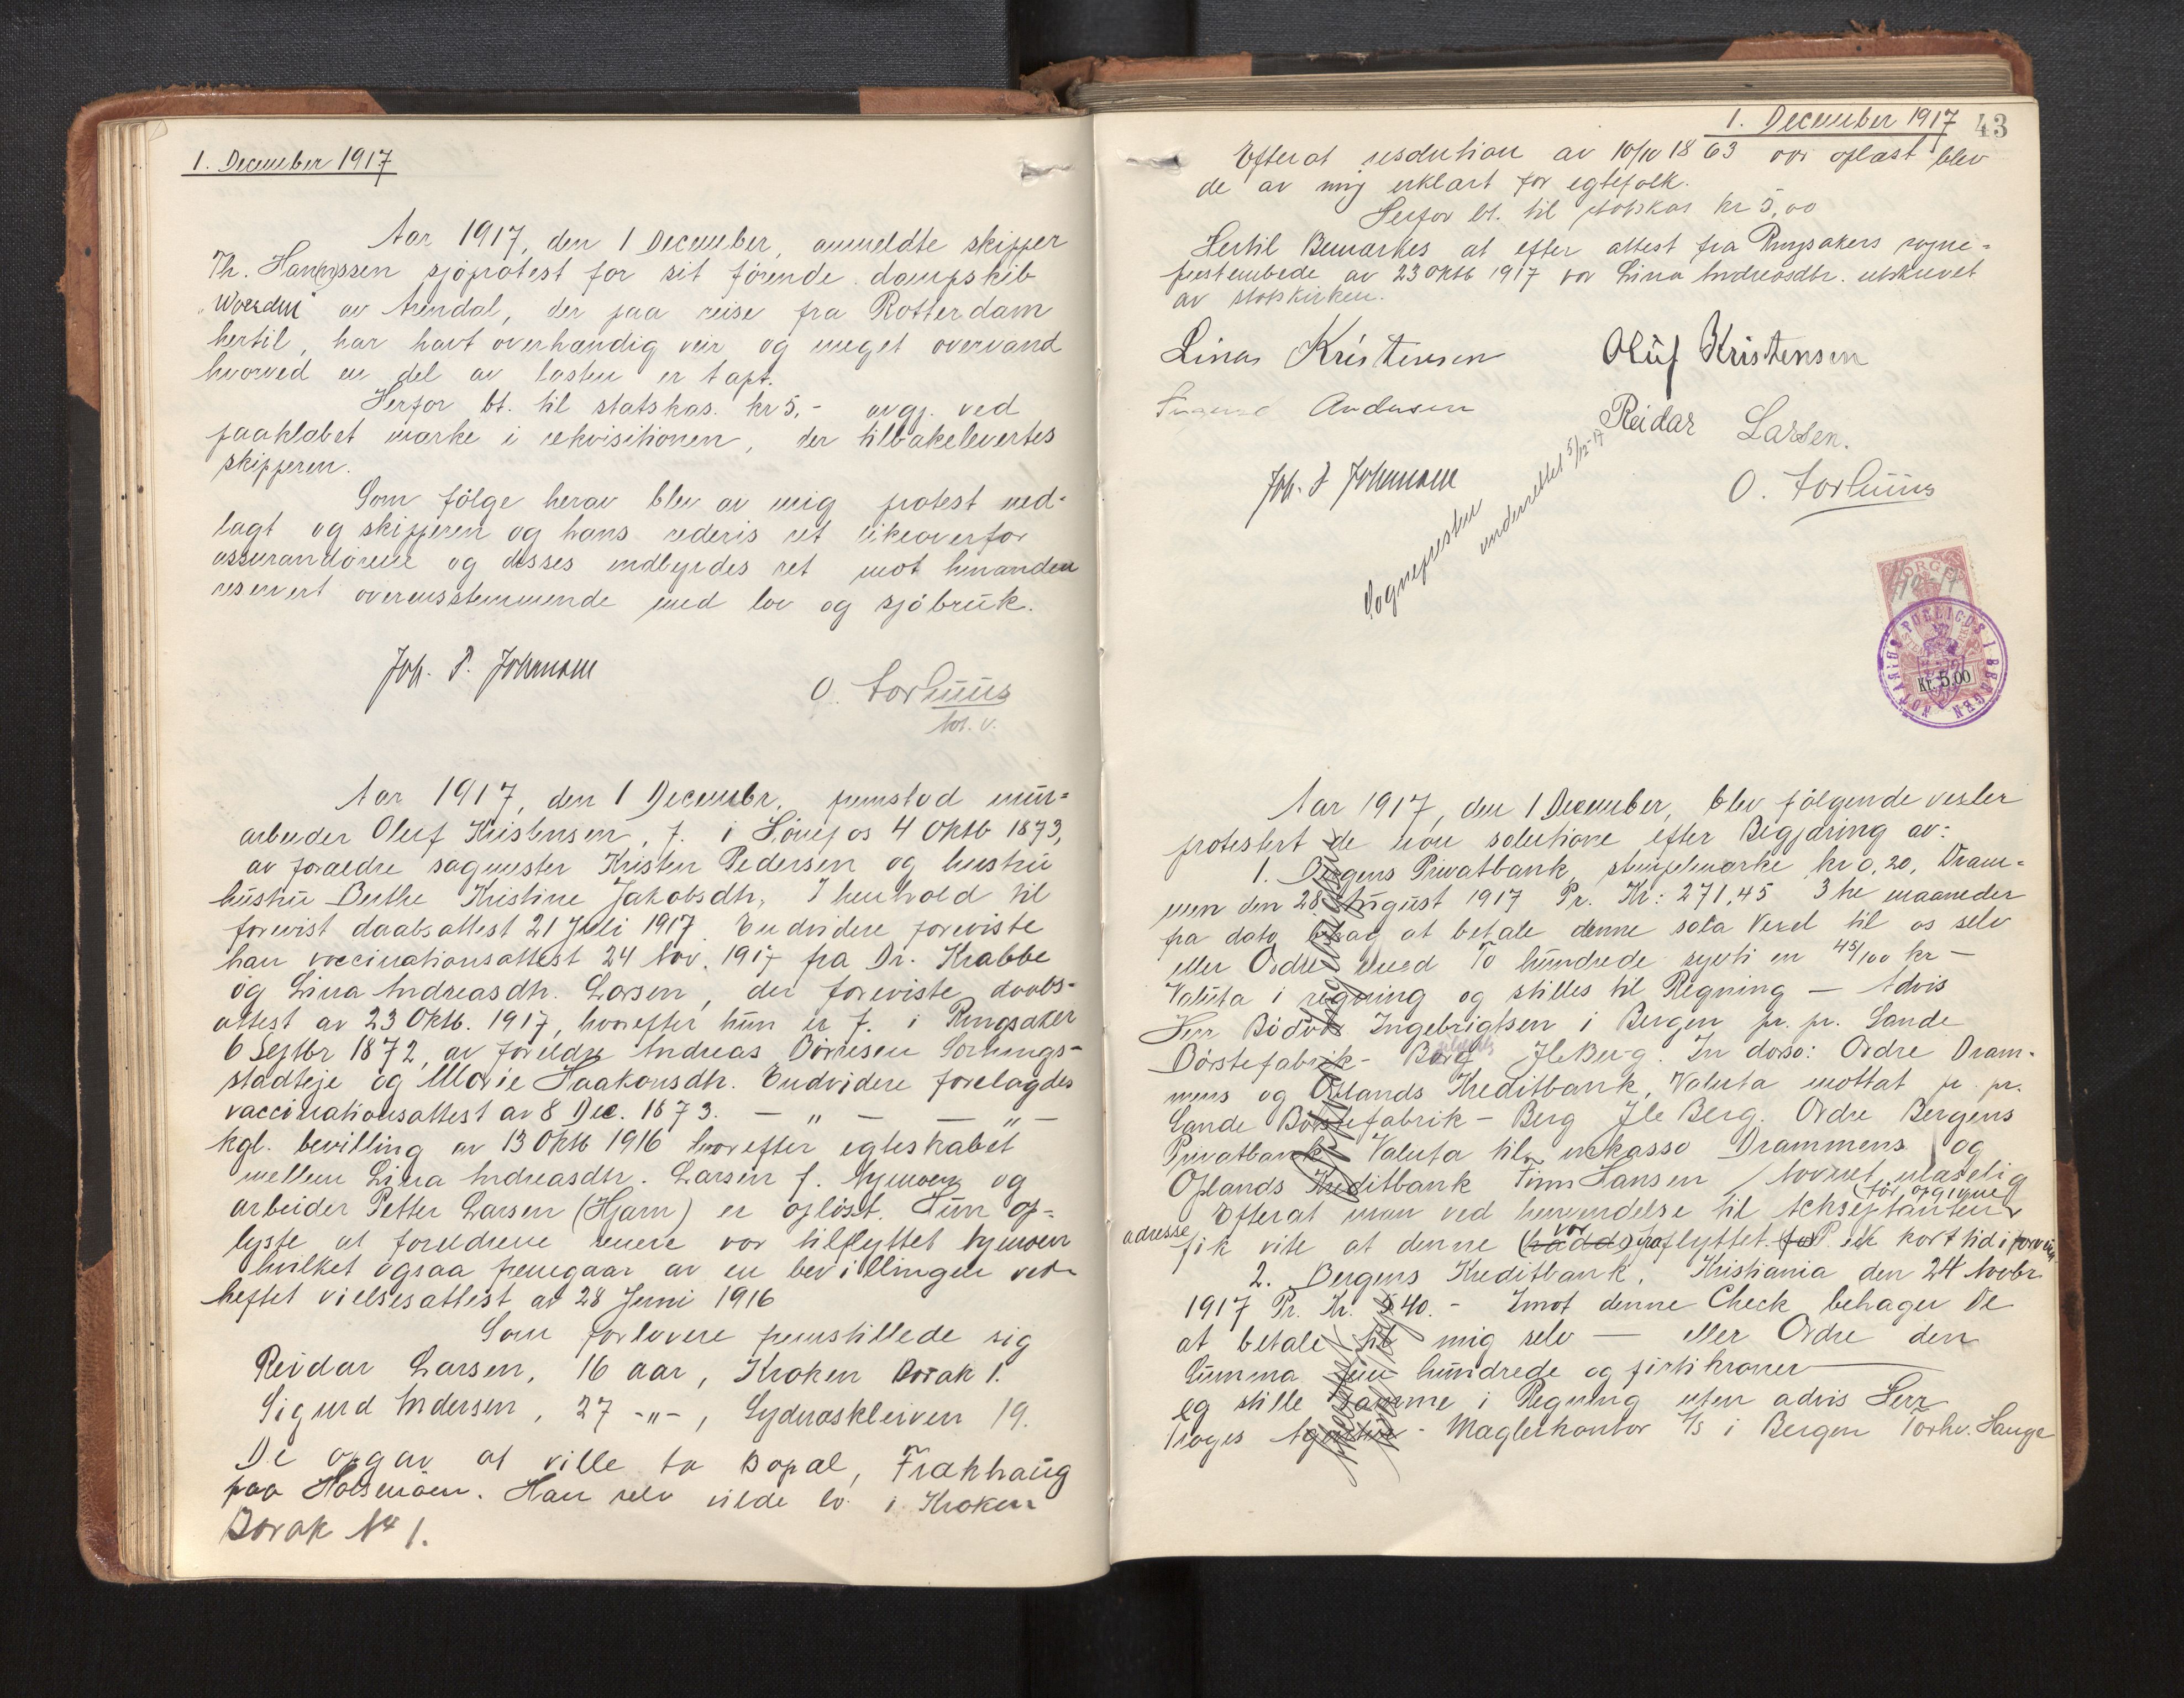 1. December 1917
Aar 1917, den 1 December, anmeldte skipper
Th. Hanssen sjøprotest for sit førende dampskib
av Arendal, der paa reise fra Rotterdam
hertil, har havt overhændig veir og meget overvand
hvorved en del av lasten er tapt.
Herfor bt. til statskas. kr 5,- avgj. ved
paaklæbet merke i rekvisitionen, der tilbakelevertes
skipperen.
Som følge herav blev av mig protest ned-
lagt og skipperen og hans rederis ret likeoverfor
assurandørene og disses indbyrdes ret mot hinanden
reservert overensstemmende med lov og sjøbruk.
Joh. P. Johannesen
O. Torhuus
Aar 1917, den 1 Decembr. fremstod mur-
arbeider Oluf Kristensen, f. i Hønefos 4 Oktb 1873,
av foreldre sagmester Kristen Pedersen og hustru
hustru Berthe Kristine Jakobsdtr, I henhold til
forevist daabsattest 21 Juli 1917. Endvidere foreviste
han vaccinationsattest 24 Nov. 1917 fra Dr. Krabbe
og Lina Andreasdtr. Larsen, der foreviste daabs-
attest av 23 Oktb. 1917, hvorefter hun er f. i Ringsaker
6 Septbr 1872, av foreldre Andreas Børresen
og Marie Haakonsdtr. Endvidere forelagdes
vaccinationsattest av 8 Dec. 1873. — " — — " —
kgl. bevilling av 13 Oktb 1916 hvorefter egteskabet
mellem Lina Andreasdtr. Larsen f. Nymoen og
arbeider Petter Larsen (Hjarn) er opløst. Hun op-
lyste at foreldrene senere var tilflyttet Nymoen
hvilket ogsaa fremgaar av en bevillingen ved-
heftet vielsesattest av 28 Juni 1916
Som forlovere fremstillede sig
Reidar Larsen, 16 aar, Kroken Barak 1.
Sigurd Andersen, 27 -"-, Sydnæskleiven 19.
De opgav at ville ta bopæl,
paa Holsnøen. Han selv vilde bo i Kroken
Barak No 1.
1. December 1917 43
Efterat resolution av 10/10 1863 var oplæst blev
de av mig erklært for egtefolk.
Herfor bt. til statskas kr 5,00
Hertil Bemærkes at efter attest fra Ringsakers sogne-
prestembede av 23 oktb 1917 var Lina Andreasdtr. utskrevet
av statskirken.
Lina Kristensen Oluf Kristensen
Andersen Reidar Larsen.
Joh. P. Johannesen O. Torhuus
Sognepresten
underrettet 5/12-17
NORGE
NOTARIUS PUBLICUS I BERGEN
Kr. 5.00
Aar 1917, den 1 December, blev følgende vexler
protestert de non solutione efter Begjæring av:
1. Bergens Privatbank, stempelmerke kr 0,20, Dram-
men den 28 August 1917 Pr. Kr: 271,45 3 tre maaneder
fra dato behag at betale denne sola Vexel til os selv
eller Ordre med To hundrede sytti en 45/100 kr —
Valuta i regning og stilles til Regning — Advis
Herr Bødvar Ingebrigtsen i Bergen pr. pr. Sande
Børstefabrik - Berg Ile Berg. In dorso: Ordre Dram-
mens og Oplands Kreditbank, Valuta mottat pr. pr.
Sande Børstefabrik - Berg Ile Berg. Ordre Bergens
Privatbank Valuta til inkasso Drammens og
Oplands Kreditbank Finn Hansen / Navnet ulæselig
Efterat man ved henvendelse til Akseptantens før opgivne
adresse fik vite at denne var fraflyttet for kort tid i forveien
2. Bergens Kreditbank. Kristiania den 24 Novbr.
1917 Pr. Kr. 540. - Imot denne Check behager De
at betale til mig selv — eller Ordre den
Summa fem hundrede og firti kroner —
og stille samme i Regning uten advis Herr
Troyes Agentur - Maglerkontor A/S i Bergen Torhv. Hauge